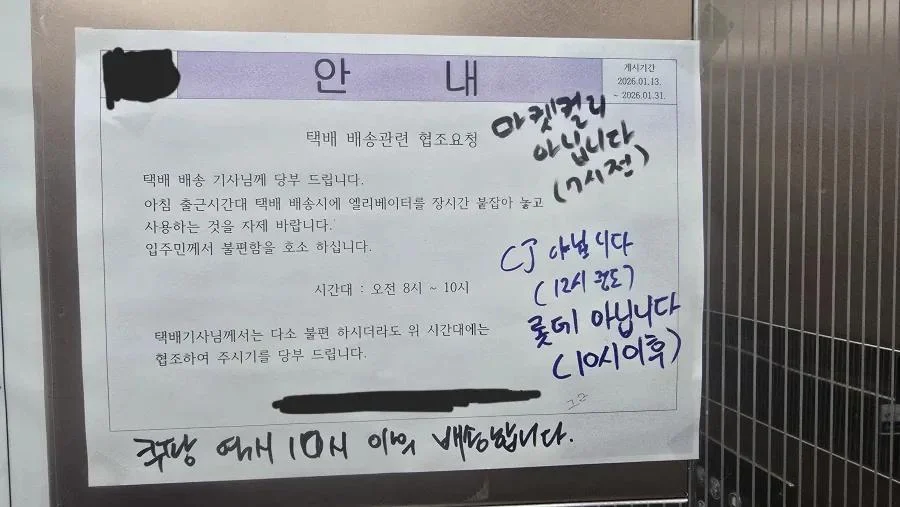 안 내
게시기간
2026.01.13.
~ 2026.01.31.
택배 배송관련 협조요청
택배 배송 기사님께 당부 드립니다.
아침 출근시간대 택배 배송시에 엘리베이터를 장시간 붙잡아 놓고
사용하는 것을 자제 바랍니다.
입주민께서 불편함을 호소 하십니다.
시간대 : 오전 8시 ~ 10시
택배기사님께서는 다소 불편 하시더라도 위 시간대에는
협조하여 주시기를 당부 드립니다.
마켓컬리
아닙니다
(7시전)
CJ 아닙니다
(12시 )
롯데 아닙니다
(10시이후)
쿠팡 역시 10시 이후 배송합니다.